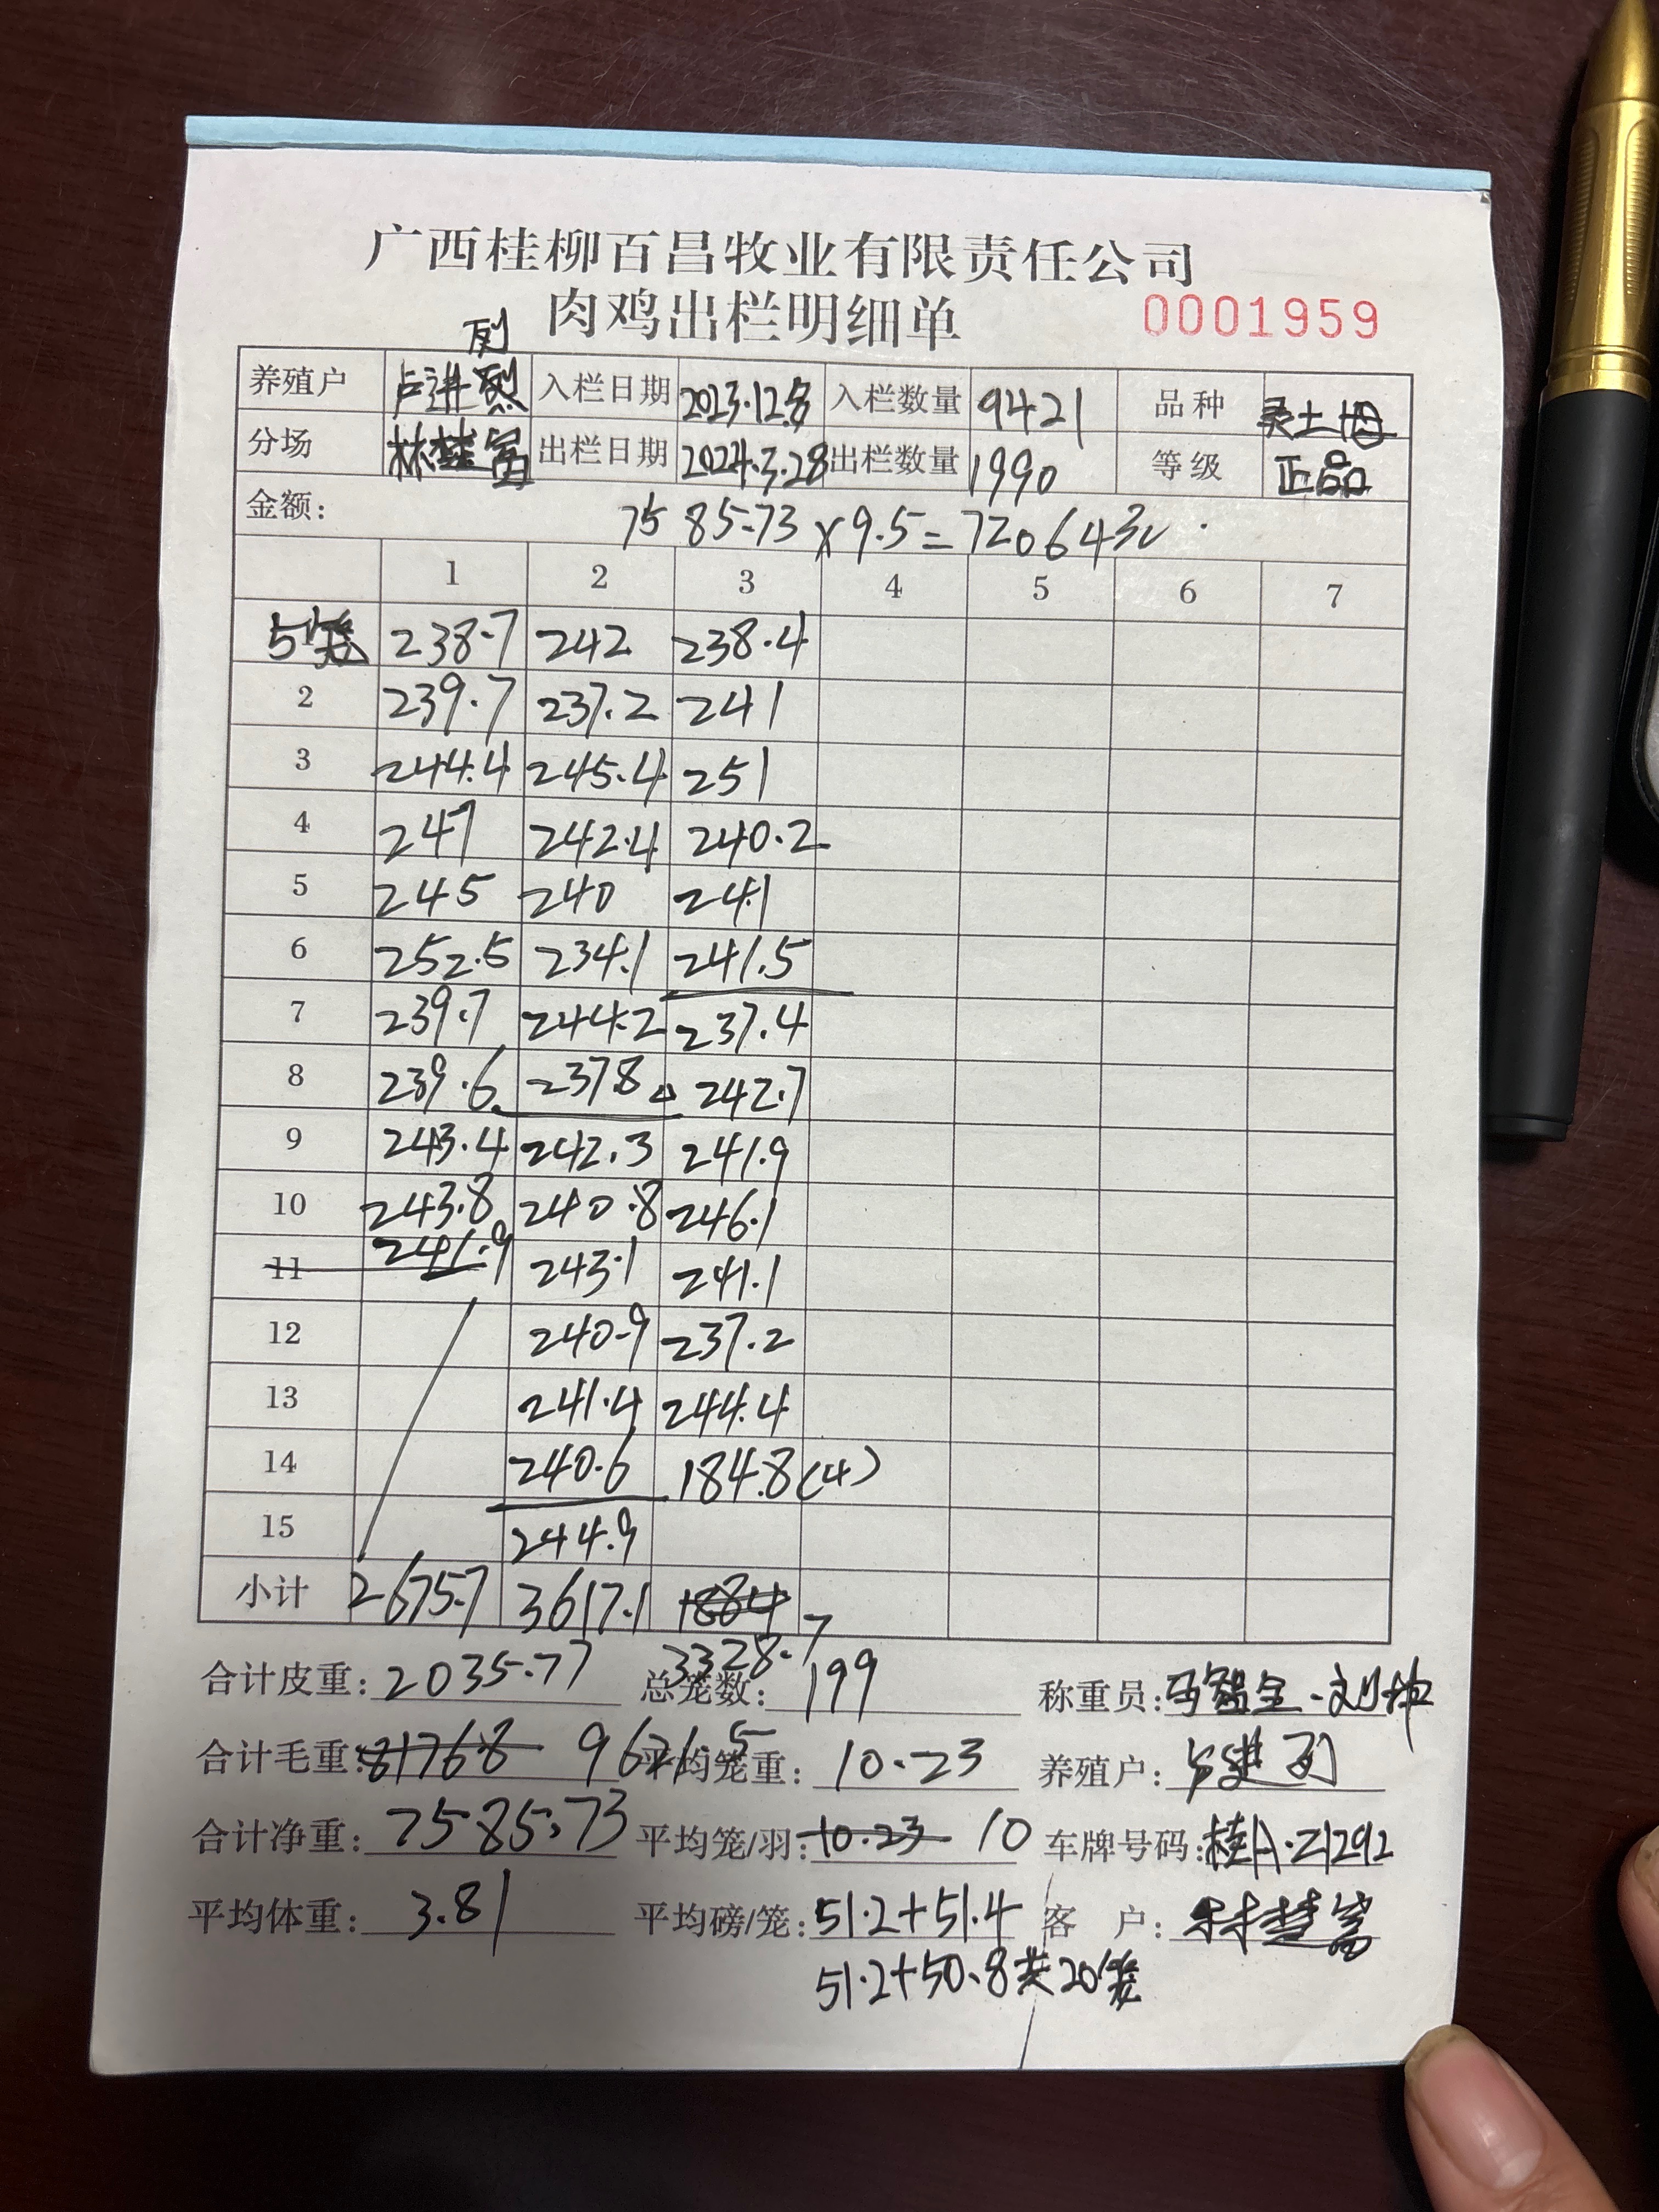 广西桂柳百昌牧业有限责任公司
肉鸡出栏明细单 0001959
列
养殖户 卢进烈 入栏日期 2023.12.8 入栏数量 9421 品种 灵土母
分场 林慧富 出栏日期 2024.3.28 出栏数量 1990 等级 正品
金额: 7585.73×9.5=72064元.
1 2 3 4 5 6 7
5笼 238.7 242 238.4
2 239.7 237.2 241
3 244.4 245.4 251
4 247 242.4 240.2
5 245 240 241
6 252.5 234.1 241.5
7 239.7 244.2 237.4
8 239.6 237.8 242.7
9 243.4 242.3 241.9
10 243.8 240.8 246.1
11 241.9 243.1 241.1
12 240.9 237.2
13 241.4 244.4
14 240.6 184.8(4)
15 244.9
小计 2675.7 3617.1 1884
3328.7
合计皮重: 2035.77 总笼数: 199 称重员:
合计毛重: 81768 9621.5 平均笼重: 10.23 养殖户: 卢进列
合计净重: 7585.73 平均笼/羽: 10.23 10 车牌号码: 桂A·Z1292
平均体重: 3.81 平均磅/笼: 51.2+51.4 客户: 林慧富
51.2+50.8共20笼